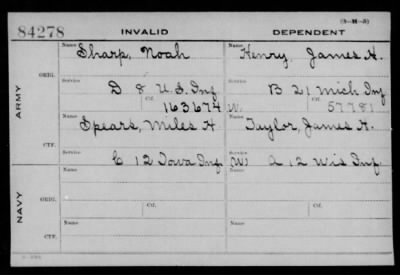 (3-M-5)
84278 INVALID DEPENDENT
Name Name
Sharp, Noah Henry, James H.
ORIG.
Service Service
D 8 U.S. Inf B 21 Mich Inf
Ctf. Ctf.
163674 W. 57781
ARMY
Name Name
Spears, Miles H Taylor, James A.
CTF.
Service Service
C 12 Iowa Inf W A 12 Wis Inf.
Name Name
ORIG.
Ctf. Ctf.
NAVY
Name Name
CTF.